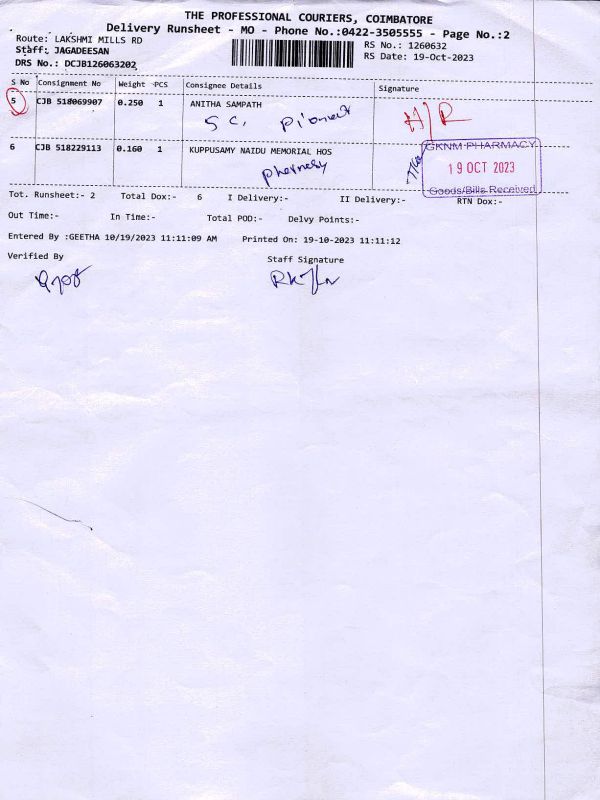 THE PROFESSIONAL COURIERS, COIMBATORE
Delivery Runsheet - MO - Phone No.:0422-3505555 - Page No.:2
Route: LAKSHMI MILLS RD
RS No.: 1260632
Staff: JAGADEESAN
RS Date: 19-Oct-2023
DRS No.: DCJB126063202
S No Consignment No Weight PCS Consignee Details Signature
5 CJB 518069907 0.250 1 ANITHA SAMPATH
S.C. H/R
6 CJB 518229113 0.160 1 KUPPUSAMY NAIDU MEMORIAL HOS
GKNM PHARMACY
19 OCT 2023
Goods/Bills Received
Tot. Runsheet:- 2 Total Dox:- 6 I Delivery:- II Delivery:- RTN Dox:-
Out Time:- In Time:- Total POD:- Delvy Points:-
Entered By :GEETHA 10/19/2023 11:11:09 AM Printed On: 19-10-2023 11:11:12
Verified By Staff Signature